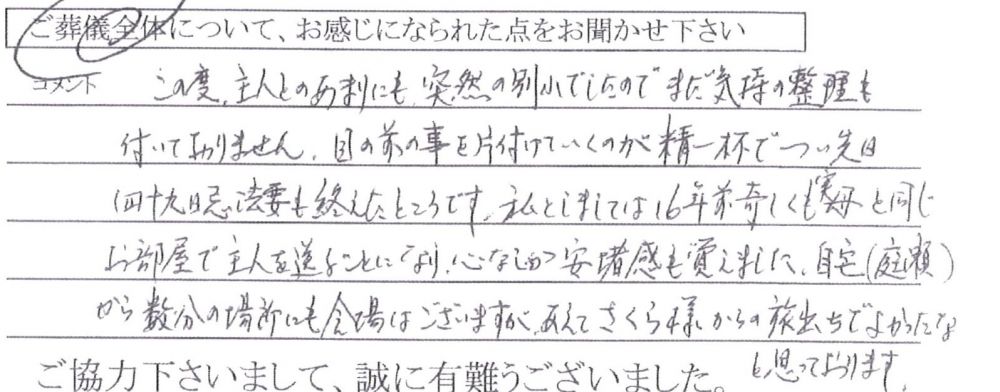 ご葬儀全体について、お感じになられた点をお聞かせ下さい
コメント
この度、主人とのあまりにも、突然の別れでしたので まだ気持の整理も
付いておりません。目の前の事を片付けていくのが精一杯でつい先日
四十九日忌法要も終えたところです。私としましては16年前奇しくも実母と同じ
お部屋で主人を送ることになり、心なしか安堵感も覚えました。自宅(庭瀬)
から数分の場所にも会場はございますが、あえてさくら様からの旅出ちでよかったな
と思っております
ご協力下さいまして、誠に有難うございました。